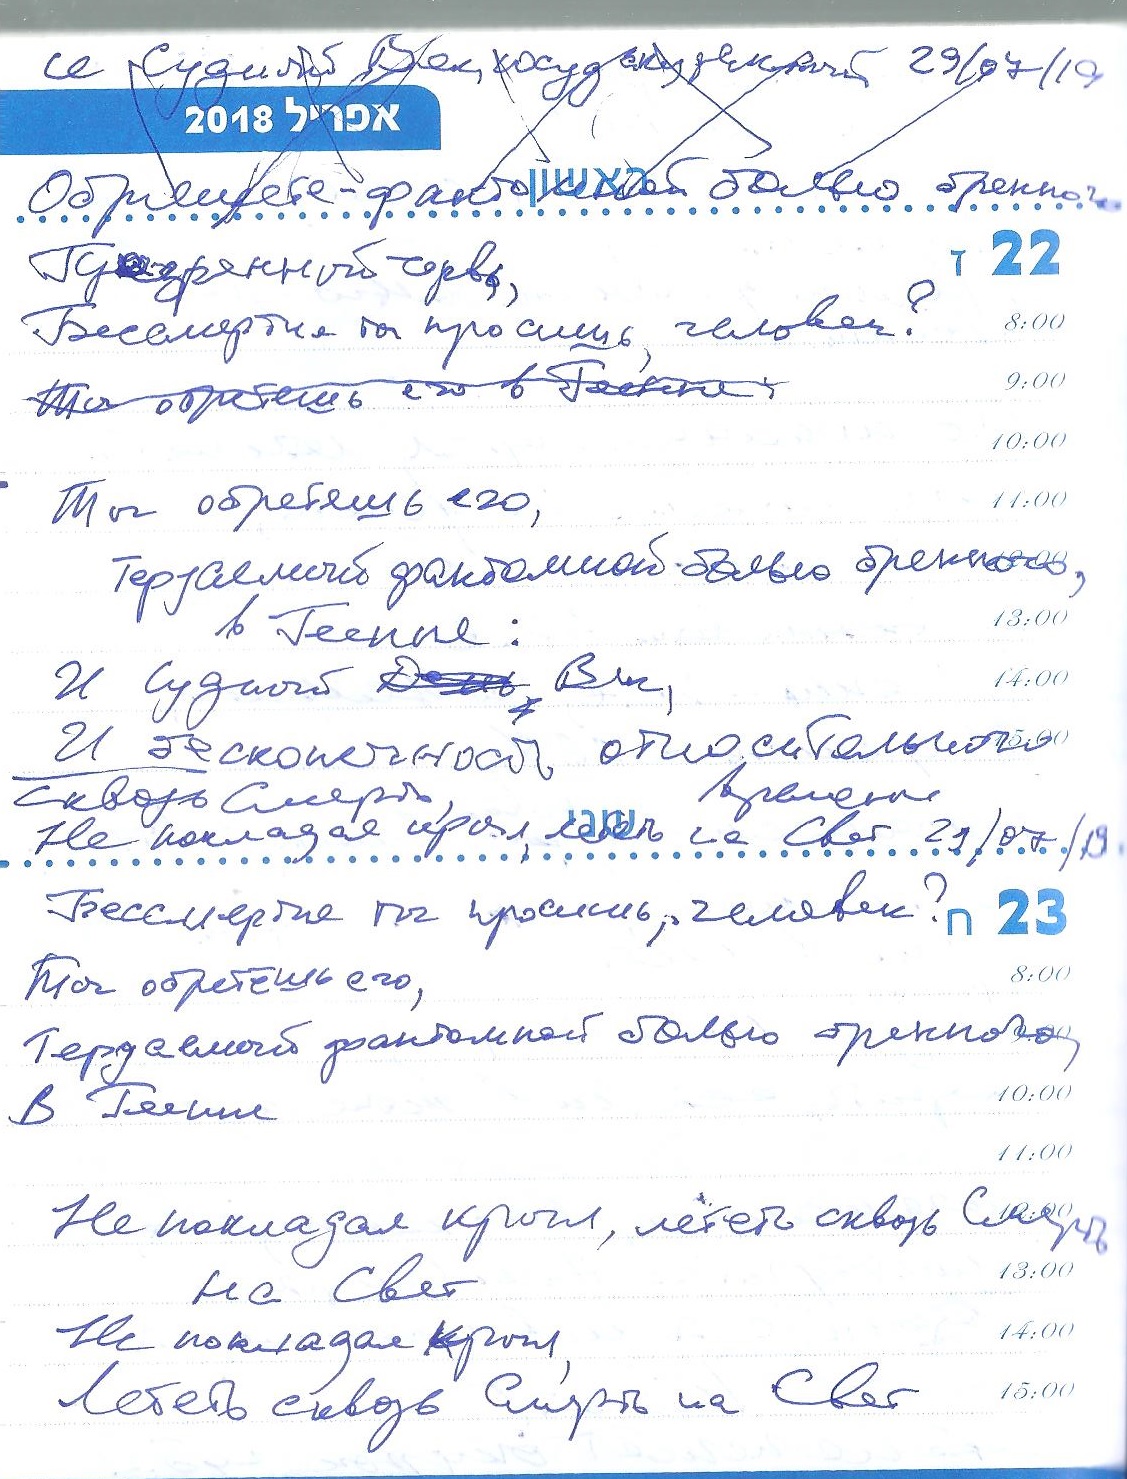 се Судный Век, 29/07/19
אפריל 2018
ראשון
Обрящете - фантомной болью бренного
ז 22
червь,
Бессмертие ты просишь, человек?
8:00
Ты обретешь его в Геенне:
9:00
10:00
Ты обретешь его,
11:00
Терзаемый фантомной болью бренного,
12:00
в Геенне:
13:00
И Судный День, Век,
14:00
И бесконечность относительного
15:00
сквозь Смерть, времени
Не покладая крыл, лететь на Свет 29/07/19.
שני
Бессмертие ты просишь, человек?
ח 23
Ты обретёшь его,
8:00
Терзаемый фантомной болью бренного,
9:00
В Геенне
10:00
11:00
Не покладая крыл, лететь сквозь Смерть
12:00
на Свет
13:00
Не покладая крыл,
14:00
Лететь сквозь Смерть на Свет
15:00